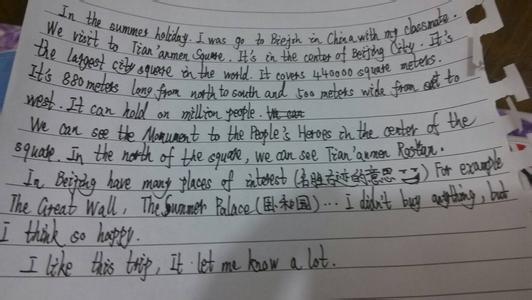 In the summer holiday. I was go to Biejih in China with my classmate.
We visit to Tian'anmen Square. It's in the center of Beijing City. It's
the largest city square in the world. It covers 440000 square meters.
It's 880 meters long from north to south and 500 meters wide from to
west. It can hold on million people.
We can see the Monument to the People's Heroes in the center of the
square. In the north of the square, we can see Tian'anmen Rostum.
In Beijing have many places of interest (名胜古迹的意思) For example
The Great Wall, The summer Palace (卧和园)... I didn't buy anything, but
I think so happy.
I like this trip, It let me know a lot.